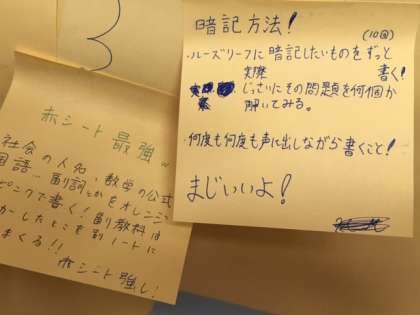 暗記方法!
(10回)
・ルーズリーフに暗記したいものをずっと
書く!
実際
じっさいにその問題を何個か
解いてみる。
・何度も何度も声に出しながら書くこと!
まじいいよ!
赤シート最強
社会の人名
国語…副詞とか数学の公式
ピンクで書く!副教科は
かしたとこを別ノートに
まくる!!
赤シート強し!